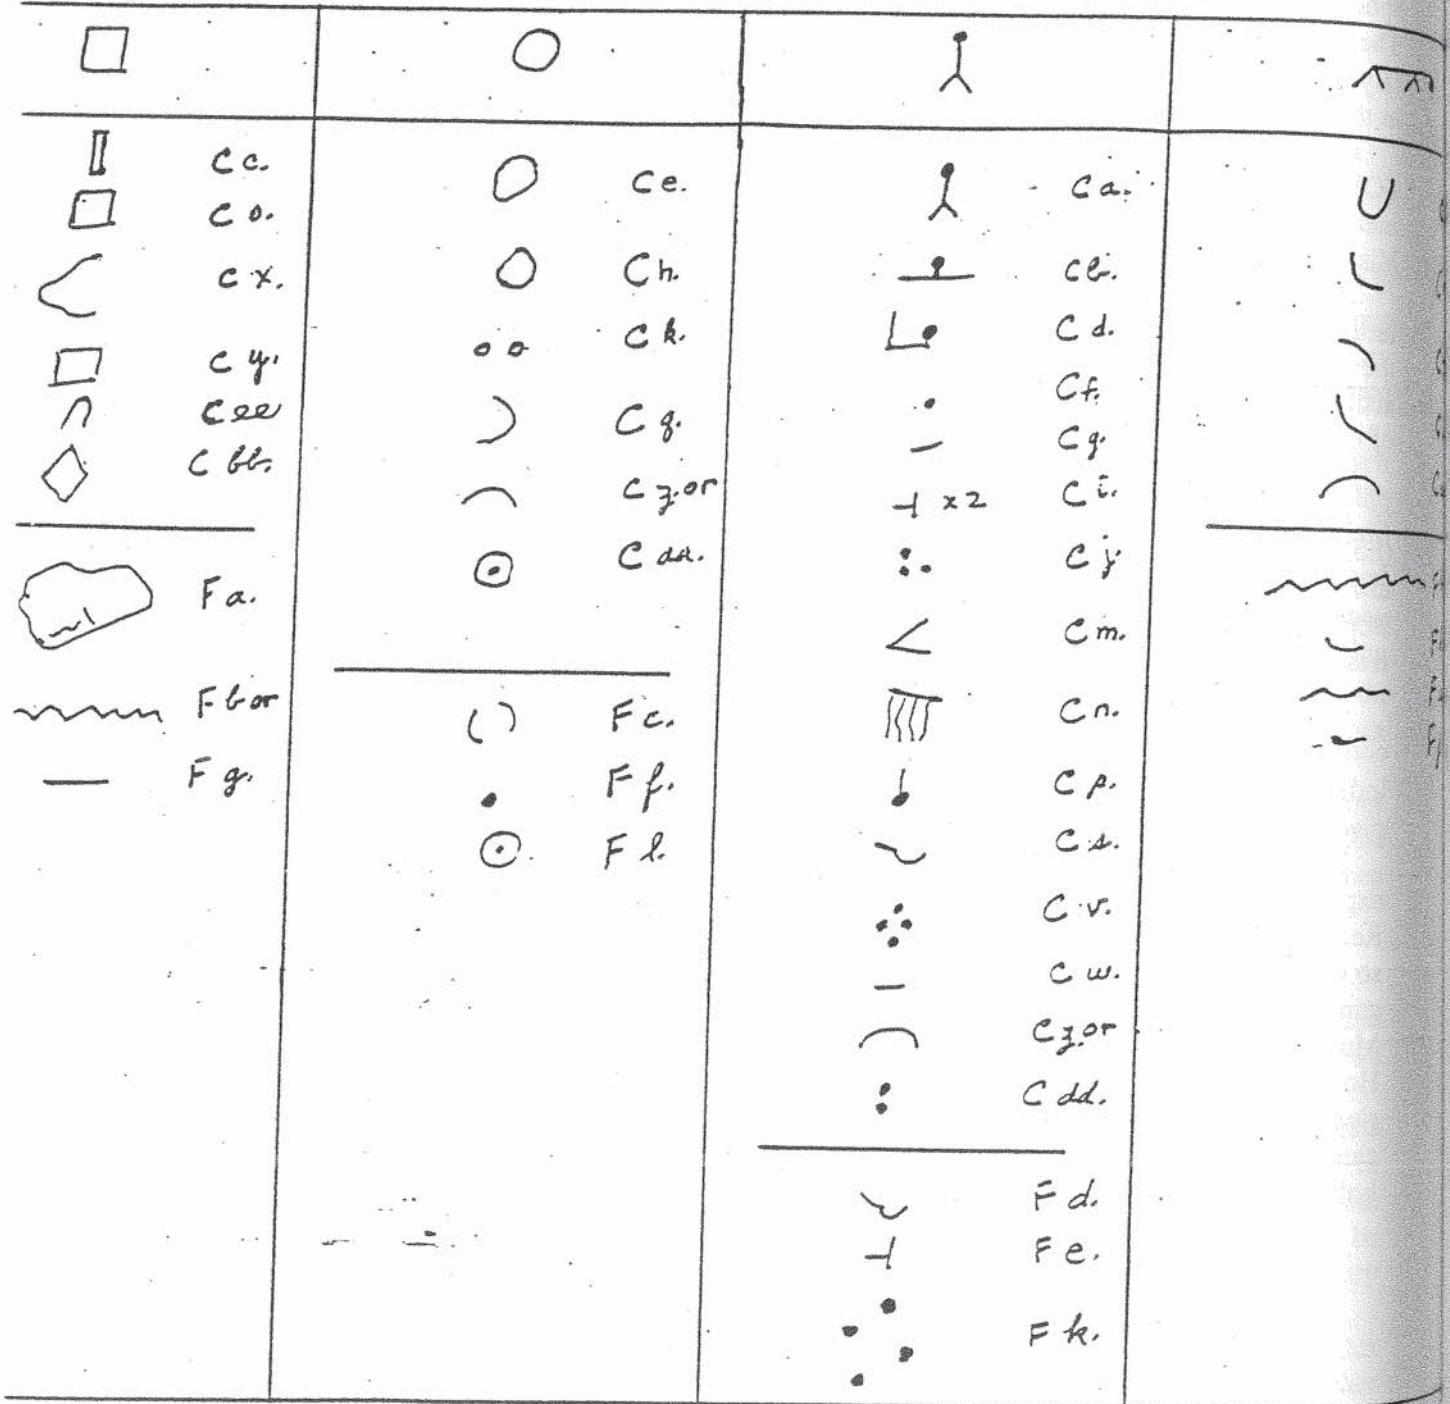 C c.
C o.
C x.
C y.
C ee
C bb.
F a.
F b or
F g.
C e.
C h.
C k.
C q.
C z. or
F c.
F f.
F l.
C a.
C b.
C d.
C f.
C g.
x2 C i.
C j.
C m.
C n.
C p.
C s.
C v.
C w.
C z. or
C dd.
F d.
F e.
F k.